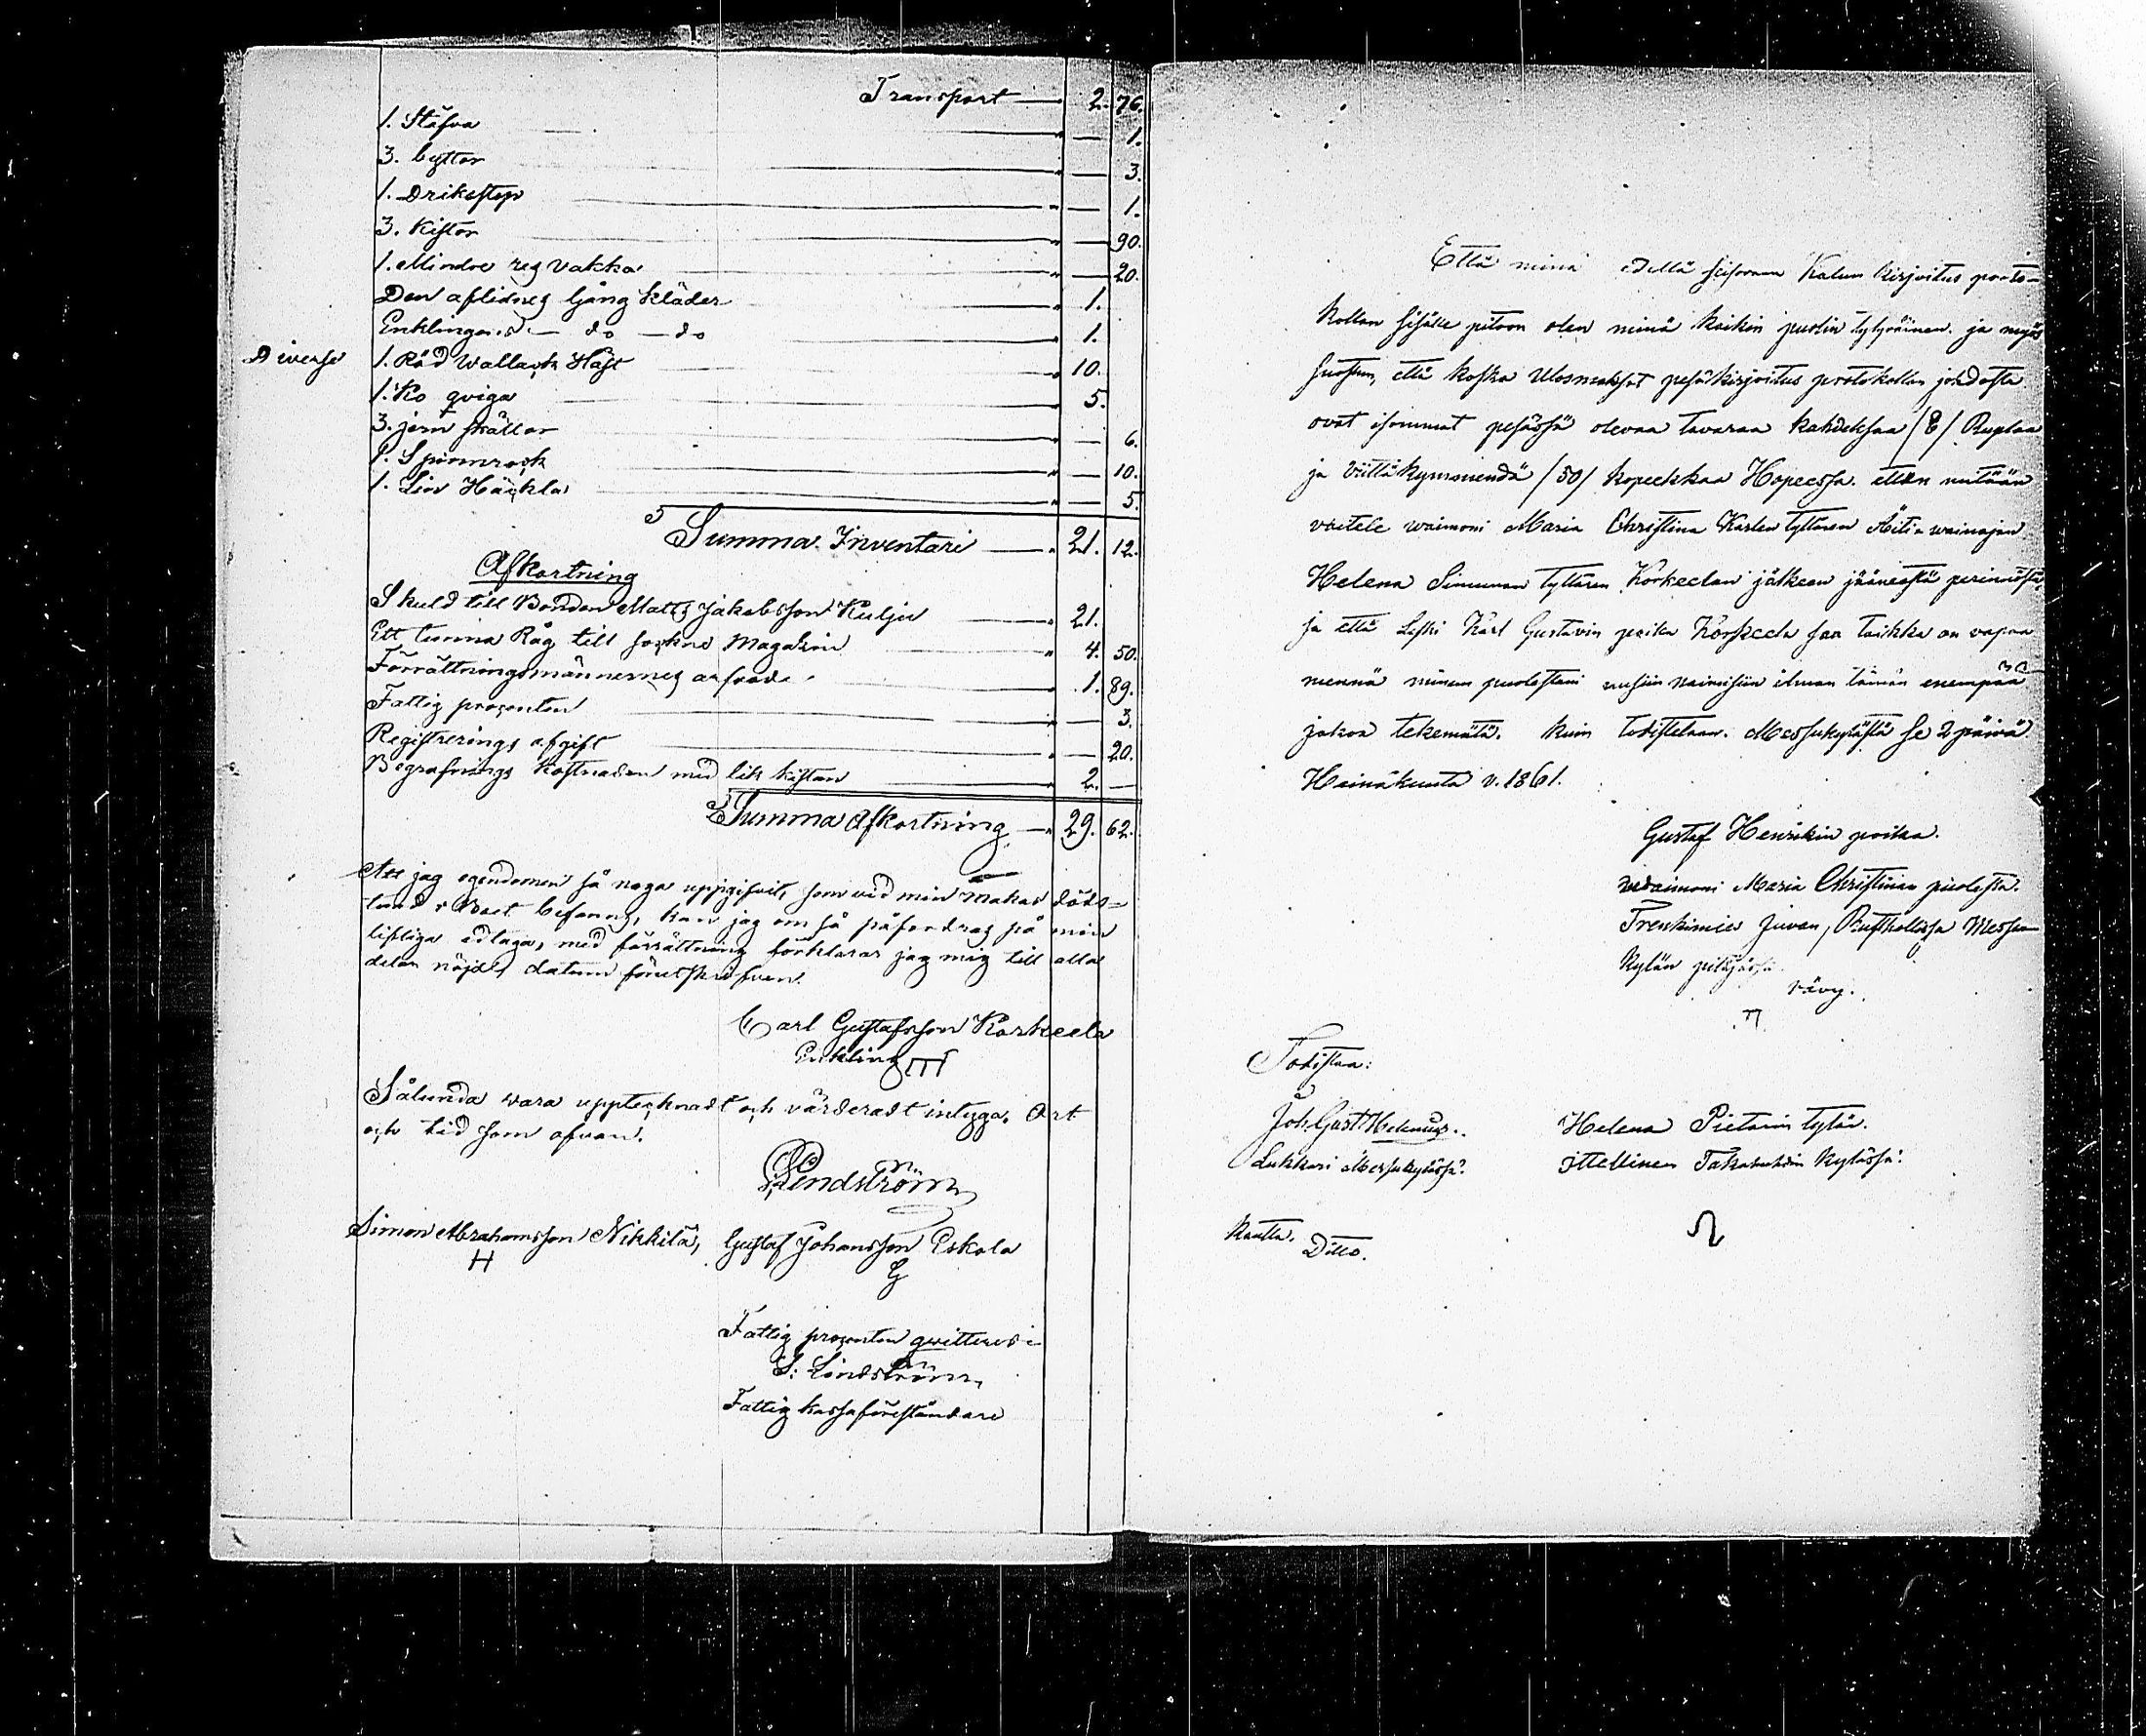 Transport — 2. 76.
1. Stäfva " — 1.
3. byttor " — 3.
1. Drikestop " — 1.
3. Kistor " — 90.
1. Mindre reg vakka " — 20.
Den aflidnes Gång kläder " 1.
Enklingens — do — do " 1.
Diverse 1. Röd Wallack Häst " 10.
1. Ko qviga " 5.
3. jern skällor " — 6.
1. Spinnrock " — 10.
1. Lin Häckla " — 5.
Summa Inventari — " 21. 12.
Afkortning
Skuld till Bonden Matts Jakobsson Kulju " 21.
Ett tunna Råg till Sockne Magasin " 4. 50.
Förrättningsmännernes arfvode " 1. 89.
Fattig procenten " — 3.
Registrerings afgift " — 20.
Begrafnings kostnaden med lik kistan " 2. —
Summa Afkortning — " 29. 62.
Att jag egendomen så noga uppgifvit, som vid min makas döds-
lifliga edlaga, med förrättning förklarar jag mig till alla
delar nöjd, datum förutskrifven.
Carl Gustafsson Korkeela
Enkling
Sålunda vara upptecknadt och värderadt intyga, Ort
och tid som ofvan.
Lindström
Simon Abrahamsson Nikkilä, Gustaf Johansson Eskola
H G
Fattig procenten qvitteras
S: Lindström
Fattig kassaföreståndare
Että minä edellä seisovan Kalun kirjoitus proto-
kollan sisälle pitoon olen minä kaikin puolin tytyväinen. ja myös
suostun, että koska Ulosmaksot pesäkirjoitus protokollan johdosta
ovat isommat pesässä olevaa tavaraa kahdeksaa /8/ Ruplaa
ja viittäkymmendä /50/ kopeekkaa Hopeessa. etten mitään
väitele waimoni Maria Christina Karlen tyttären Äiti wainajan
Helena Simunan tyttären Korkeelan jälkeen jääneestä perinnöstä,
ja että Leski Karl Gustavin poika Korkeela saa taikka on vapaa
mennä minun puolestani uusiin naimisiin ilman tämän enempää
jakoa tekemätä. kuin todistetaan. Messukylästä se 2 päivä
Heinäkuuta v. 1861.
Gustaf Henrikin poika.
waimoni Maria Christinan puolesta.
Trenkimies Juvan, Rusthollissa Messu-
kylän pitäjässä.
Todistaa:
Joh. Gust. Helenius.
Lukkari Messukylässä.
Helena Pietarin tytär.
ittellinen Takahuhdin kylässä.
kautta.
Ditto.